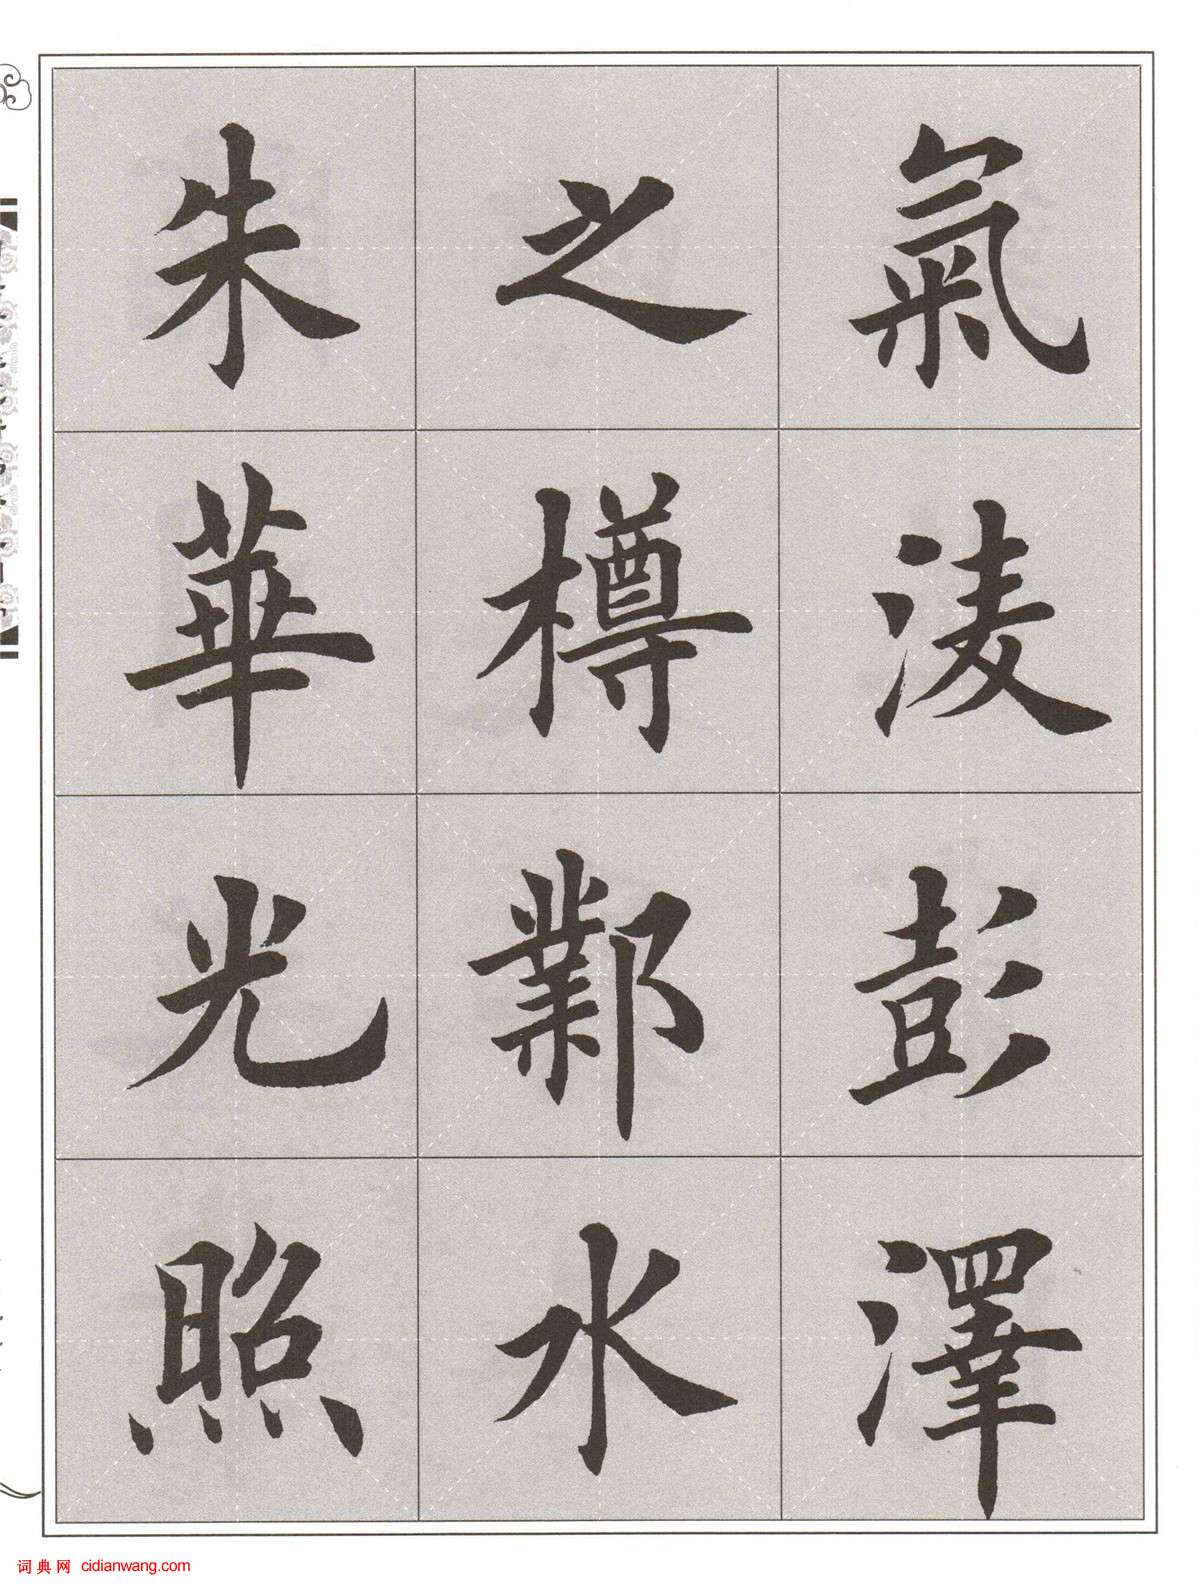 氣淩彭澤
之樽鄴水
朱華光照
词典网 cidianwang.com